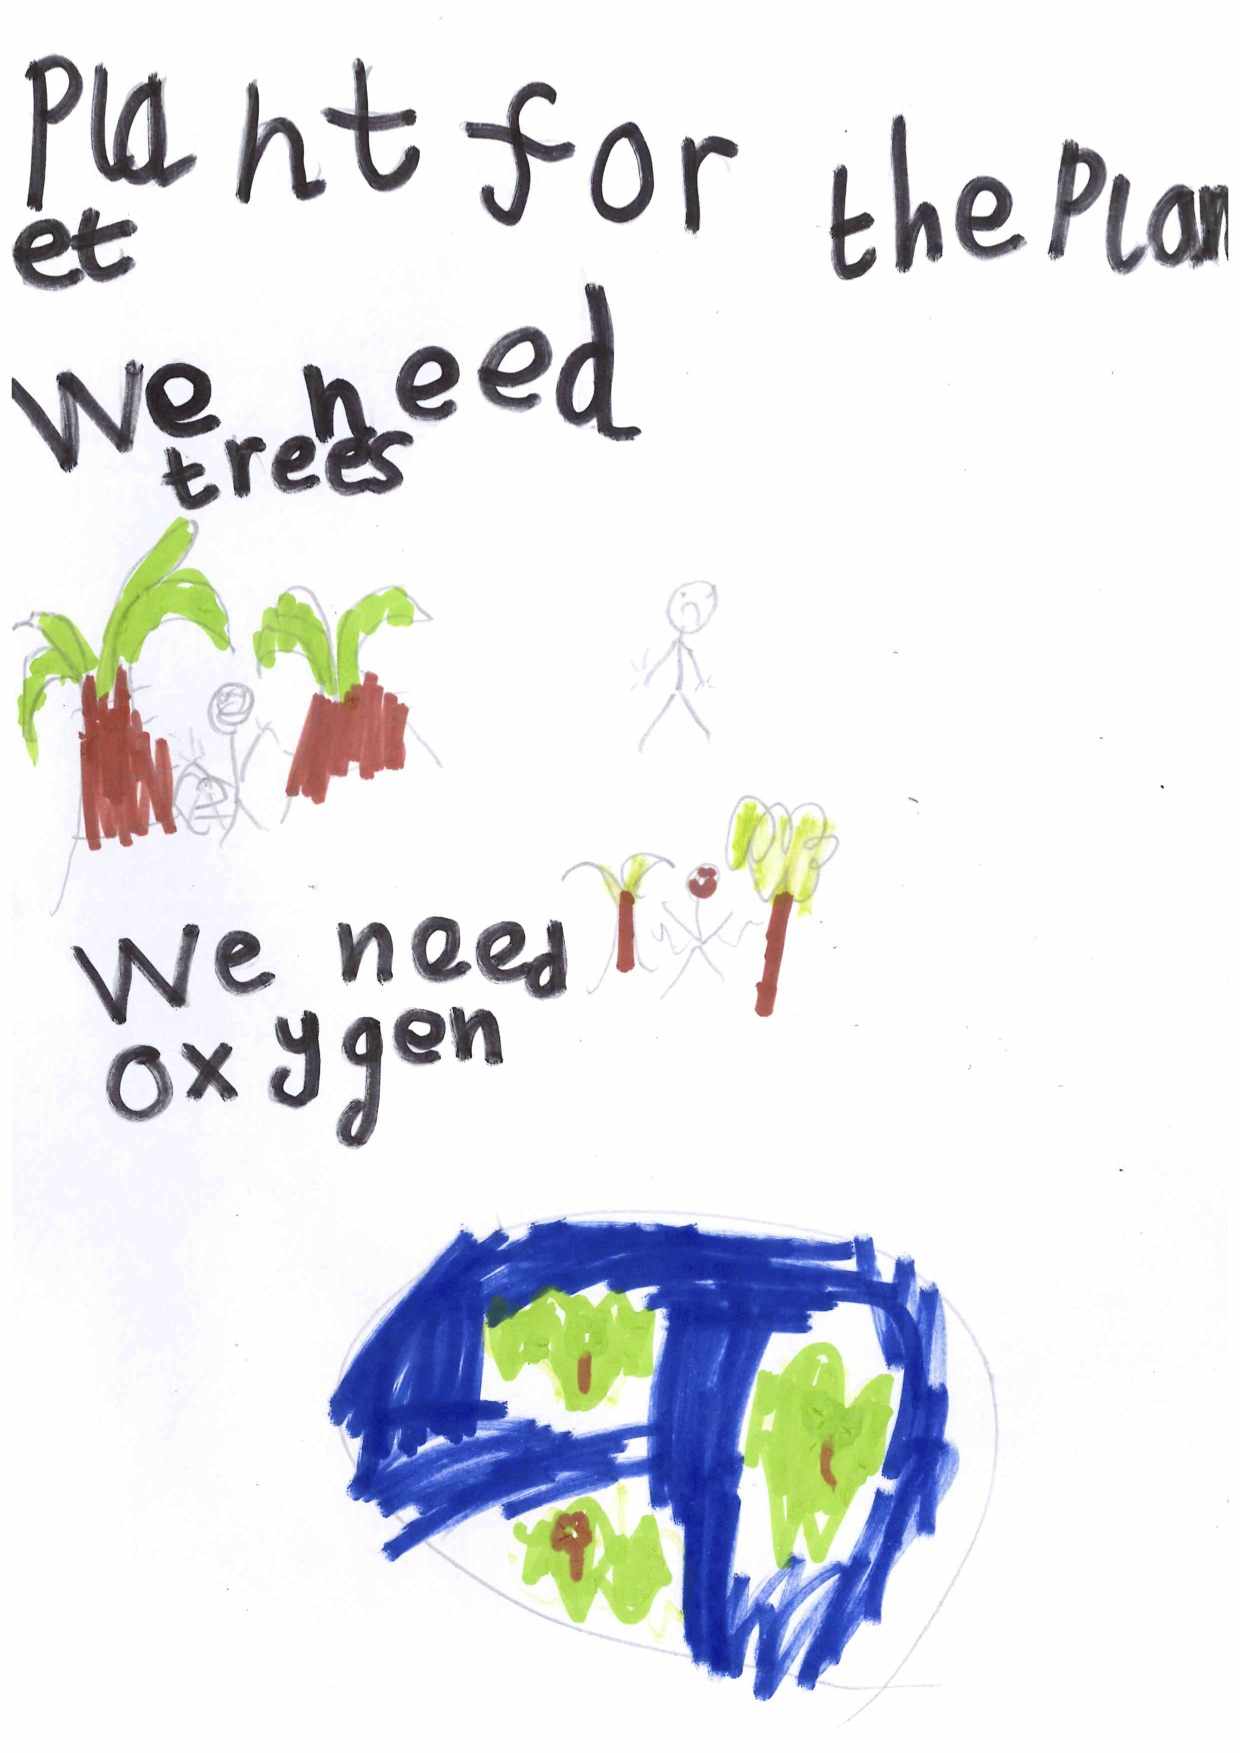 Plant for the Plan
et
We need
trees
We need
oxygen